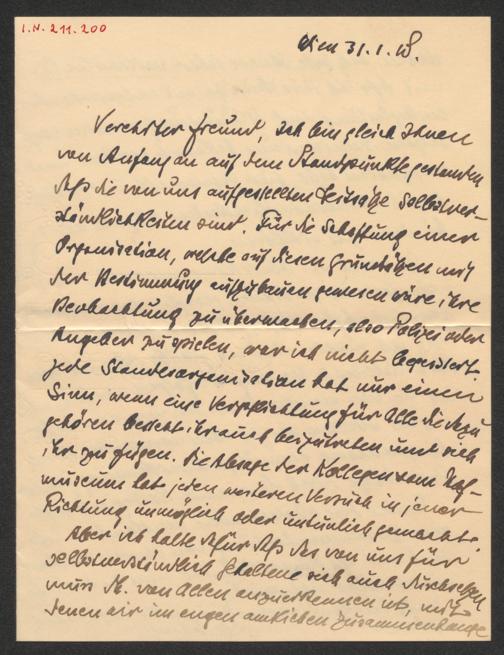 I.N. 211.200
Wien 31.1.18.
Verehrter Freund, Ich bin gleich Ihnen
von Anfang an auf dem Standpunkte gestanden
daß die von uns aufgestellten Leitsätze Selbstver-
ständlichkeiten sind. Für die Schaffung einer
Organisation, welche auf diesen Grundsätzen mit
der Bestimmung aufzubauen gewesen wäre, ihre
Beobachtung zu überwachen, also Polizei oder
Angeber zu spielen, war ich nicht begeistert
jede Standesorganisation hat nur einen
Sinn, wenn eine Verpflichtung für Alle die dazu
gehören besteht ihr auch beizutreten und sich
ihr zu fügen. Die Absage der Kollegen vom Hof-
museum hat jeden weiteren Versuch in jener
Richtung unmöglich oder untunlich gemacht.
Aber ich halte dafür daß das von uns für
selbstverständlich gehaltene sich auch durchsetzen
muss von Allen anzuerkennen ist, mit
denen wir im engen amtlichen Zusammenhange